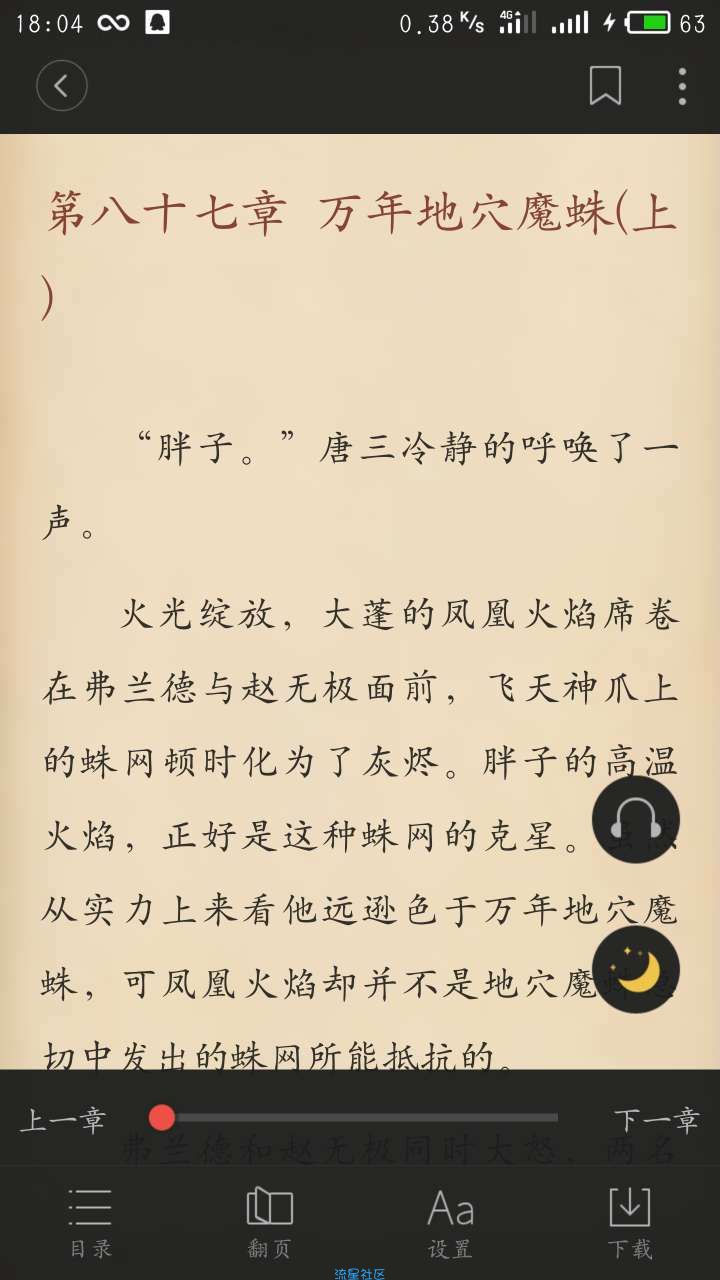 18:04 0.38 K/s 4G 63
第八十七章 万年地穴魔蛛(上
)
“胖子。”唐三冷静的呼唤了一
声。
火光绽放，大蓬的凤凰火焰席卷
在弗兰德与赵无极面前，飞天神爪上
的蛛网顿时化为了灰烬。胖子的高温
火焰，正好是这种蛛网的克星。虽然
从实力上来看他远逊色于万年地穴魔
蛛，可凤凰火焰却并不是地穴魔蛛
切中发出的蛛网所能抵抗的。
上一章 下一章
弗兰德和赵无极同时大怒，两名
目录 翻页 Aa 设置 下载
流星社区